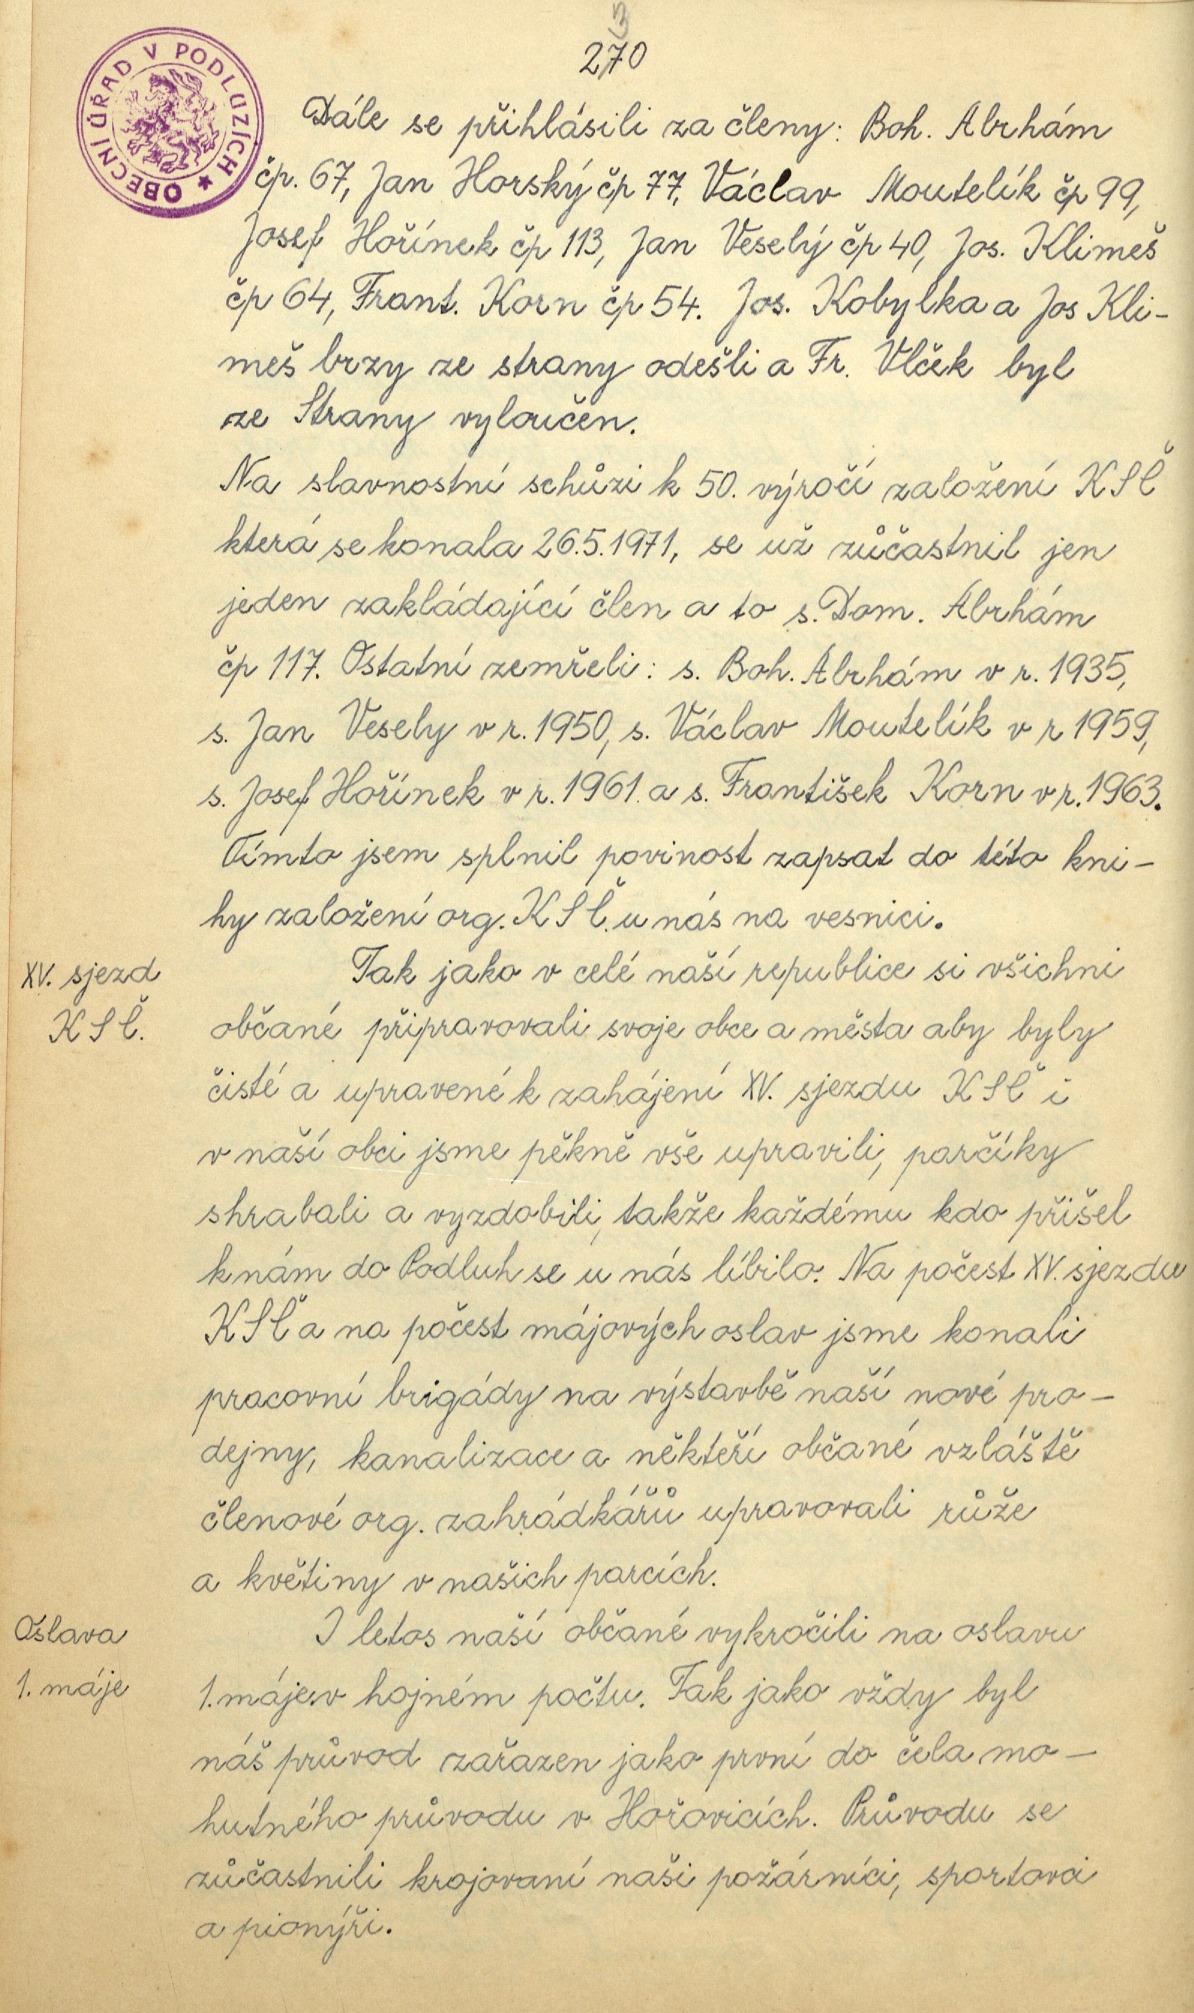 270
3
OBECNÍ ÚŘAD V PODLUZÍCH
Dále se přihlásili za členy: Boh. Abrhám
čp. 67, Jan Horský čp 77, Václav Moutelík čp 99,
Josef Hořínek čp 113, Jan Veselý čp 40, Jos. Klimeš
čp 64, Frant. Korn čp 54. Jos. Kobylka a Jos Kli-
meš brzy ze strany odešli a Fr. Vlček byl
ze Strany vyloučen.
Na slavnostní schůzi k 50. výročí založení KSČ
která se konala 26.5.1971, se už zůčastnil jen
jeden zakládající člen a to s. Dom. Abrhám
čp 117. Ostatní zemřeli: s. Boh. Abrhám v r. 1935,
s. Jan Vesely v r. 1950, s. Václav Moutelík v r 1959,
s. Josef Hořínek v r. 1961 a s. František Korn v r. 1963.
Tímto jsem splnil povinost zapsat do této kni-
hy založení org. KSČ u nás na vesnici.
XV. sjezd
KSČ.
Tak jako v celé naší republice si všichni
občané připravovali svoje obce a města aby byly
čisté a upravené k zahájení XV. sjezdu KSČ i
v naší obci jsme pěkně vše upravili, parčíky
shrabali a vyzdobili, takže každému kdo přišel
k nám do Podluh se u nás líbilo. Na počest XV. sjezdu
KSČ a na počest májových oslav jsme konali
pracovní brigády na výstavbě naší nové pro-
dejny, kanalizace a někteří občané vzláště
členové org. zahrádkářů upravovali růže
a květiny v našich parcích.
Oslava
1. máje
I letos naší občané vykročili na oslavu
1. máje v hojném počtu. Tak jako vždy byl
náš průvod zařazen jako první do čela mo-
hutného průvodu v Hořovicích. Průvodu se
zůčastnili krojovaní naši požárníci, sportovci
a pionýři.